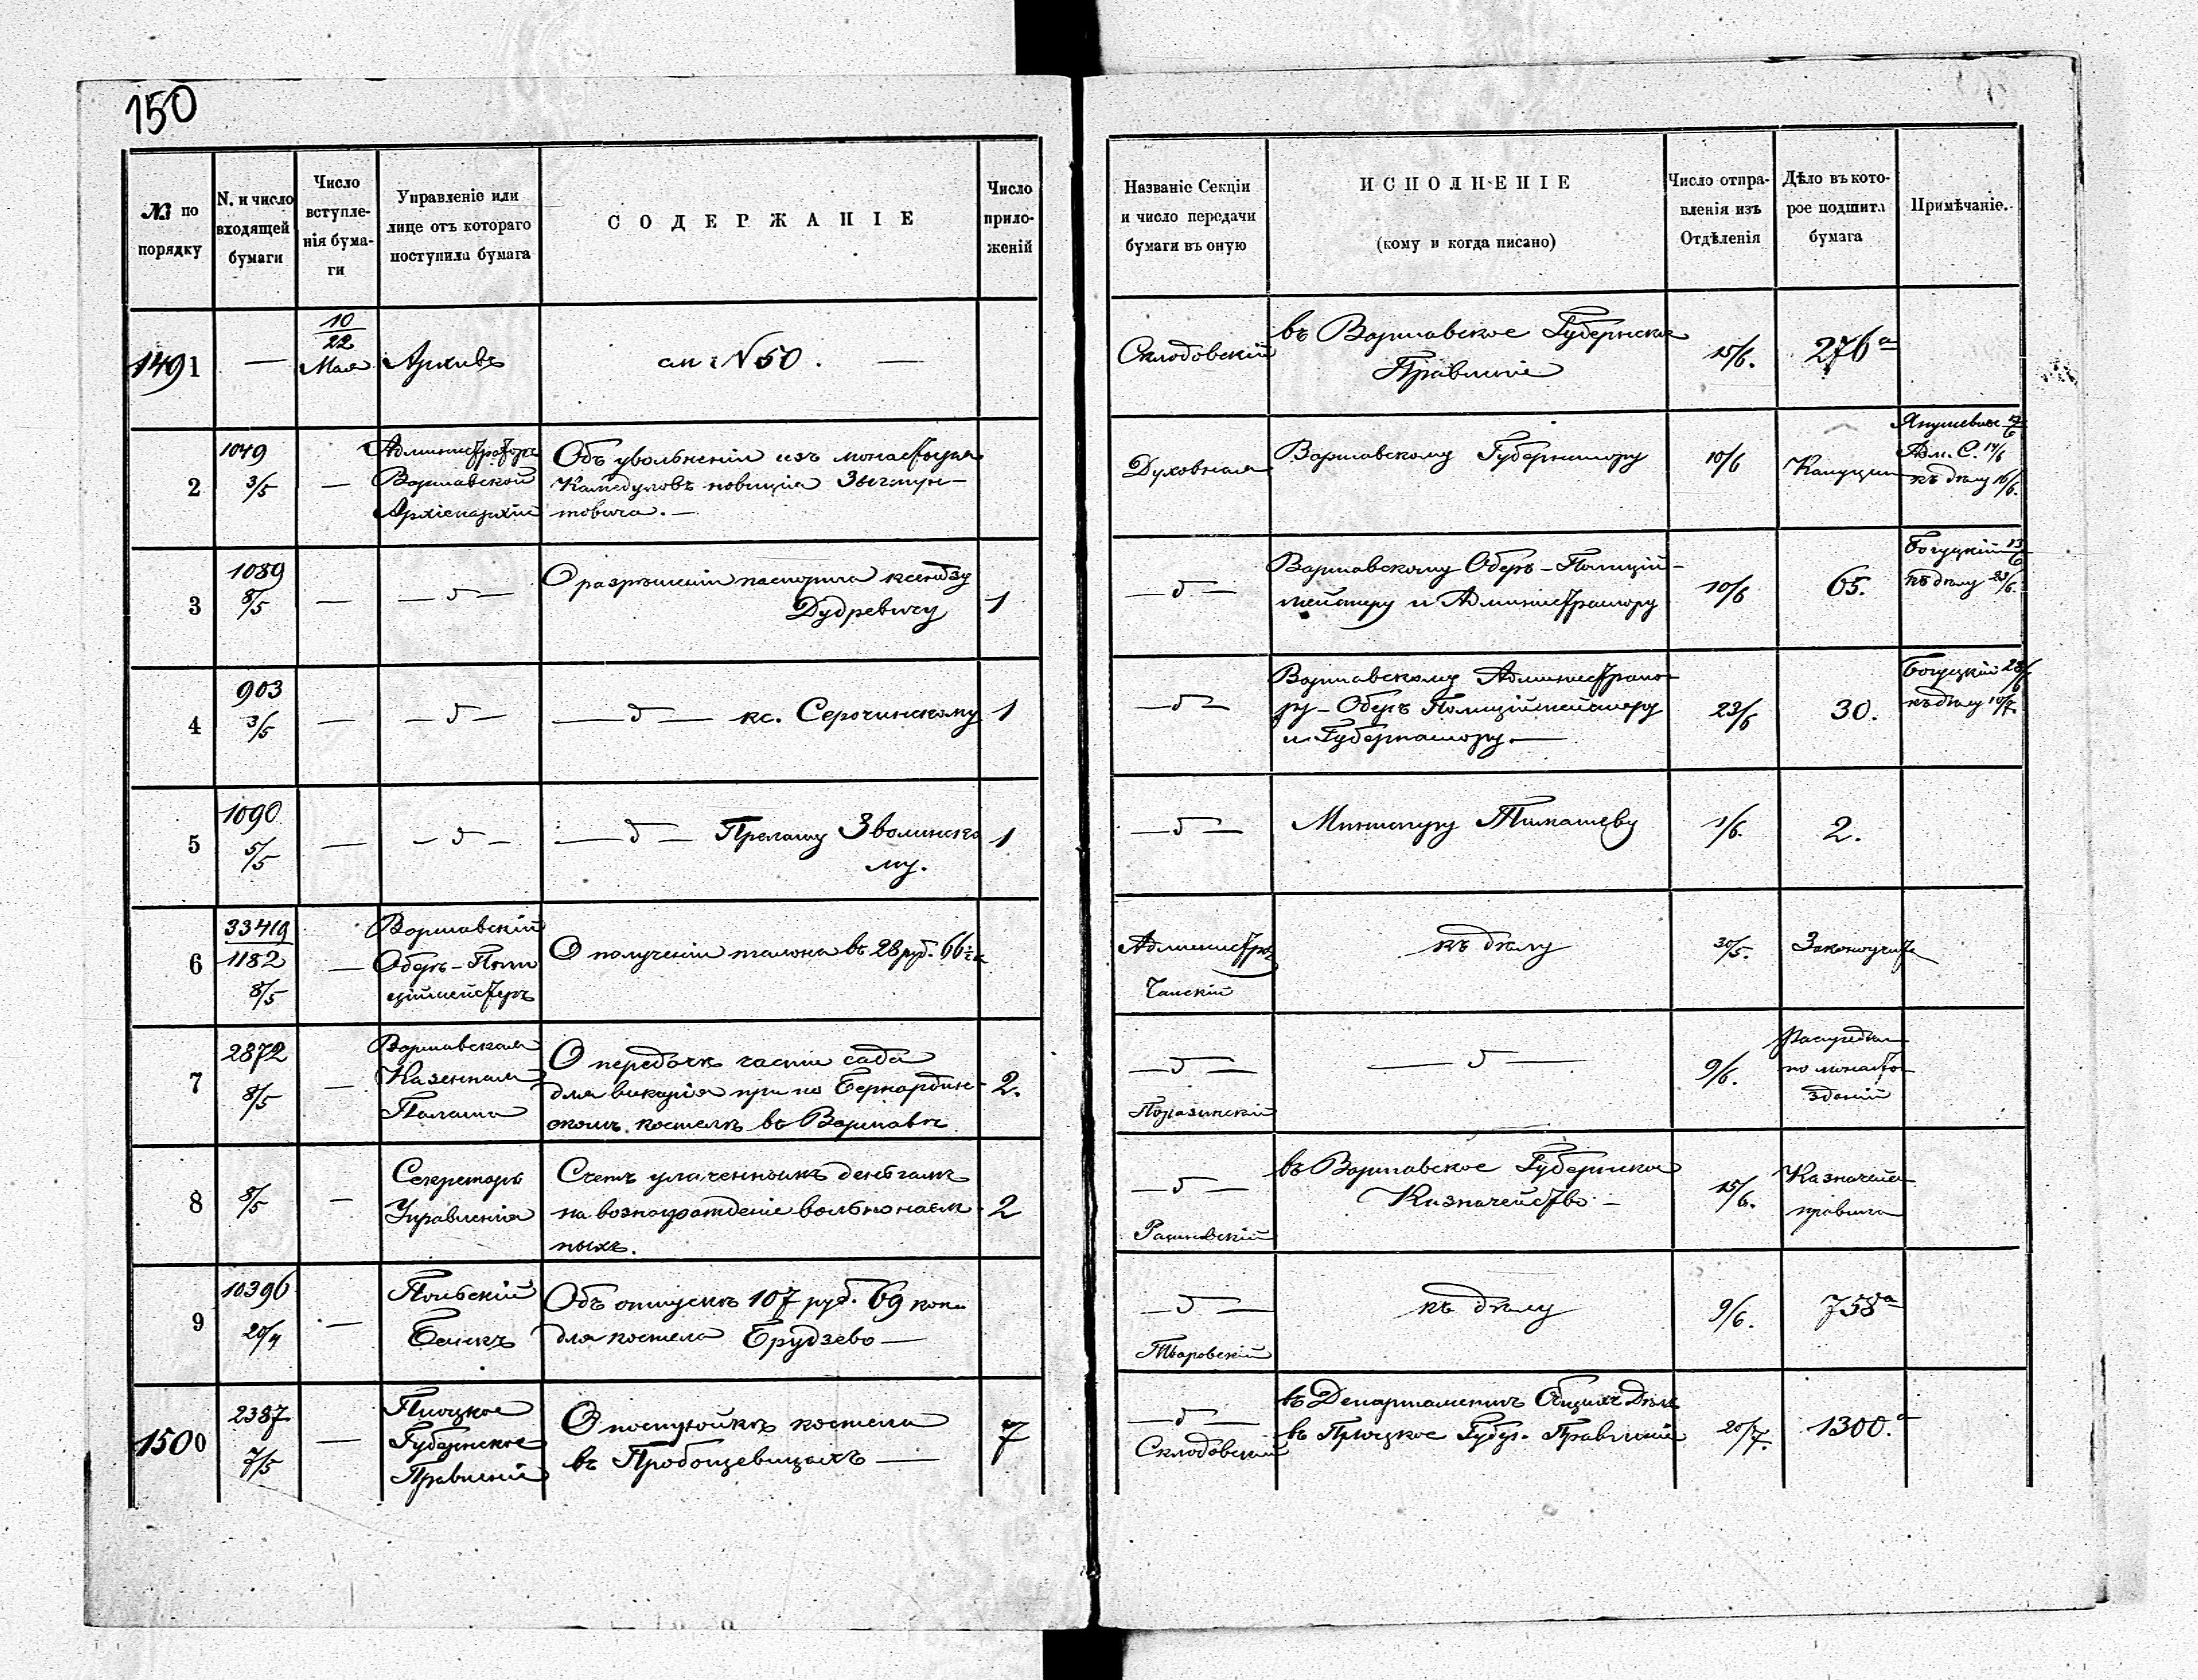 150
№ по порядку
N. и число входящей бумаги
Число вступле-нія бума-ги
Управленіе или лице отъ котораго поступила бумага
СОДЕРЖАНІЕ
Число прило-женій
Названіе Секціи и число передачи бумаги въ оную
ИСПОЛНЕНІЕ
(кому и когда писано)
Число отпра-вленія изъ Отдѣленія
Дѣло въ кото-рое подшита бумага
Примѣчаніе.
1491 — 10/22 Мая Архивъ см. N 50. —
Склодовскій въ Варшавское Губернское Правленіе 15/6. 276а
2 1049 3/5 — Администраторъ Варшавской Архіепархіи
Объ увольненіи изъ монастыря
Камедуловъ новиція
товича. —
Духовная Варшавскому Губернатору 10/6
Адм. С. 14/6
къ дѣлу 16/6.
3 1089 8/5 — — 5 —
О разрѣшеніи паспорта ксендзу
Дудревичу 1
— 5 — Варшавскому Оберъ-Полицій-
мейстеру и Администратору 10/6 65.
Богуцкій 13/6
къ дѣлу 23/6.
4 903 3/5 — — 5 — — 5 — кс. Серочинскому 1
— 5 — Варшавскому Администрато-
ру — Оберъ Полиціймейстеру
и Губернатору. — 23/6 30.
Богуцкій 28/6
къ дѣлу 10/7.
5 1090 5/5 — — 5 — — 5 — Прелату Зволинско
му. 1
— 5 — Министру Тимашеву 1/6. 2.
6 33419 1182 8/5 — Варшавскій
Оберъ-Поли
ціймейстеръ
О полученіи талона въ 28 руб. 66½ к
Администр. къ дѣлу 30/5.
7 2872 8/5 — Варшавская
Казенная
Палата
О передачѣ части сада
для викарія при по Бернардин-
скомъ костелѣ въ Варшавѣ 2.
— 5 — — 5 — 9/6.
по монаст.
зданій
8 8/5 — Секретарь
Управленія
Счетъ уплаченнымъ деньгамъ
на вознагражденіе вольнонаем
ныхъ. 2
— 5 — въ Варшавское Губернское
Казначейство — 15/6.
9 10396 20/4 — Польскій
Банкъ
Объ отпускѣ 107 руб. 69 коп.
для костела Брудзево —
— 5 — къ дѣлу 9/6. 758а
1500 2387 7/5 — Плоцкое
Губернское
Правленіе
О постройкѣ костела
въ Пробощевицахъ — 7
— 5 — въ Департаментъ Общихъ Дѣлъ
Склодовскій въ Плоцкое Губер. Правленіе 20/7. 1300.а